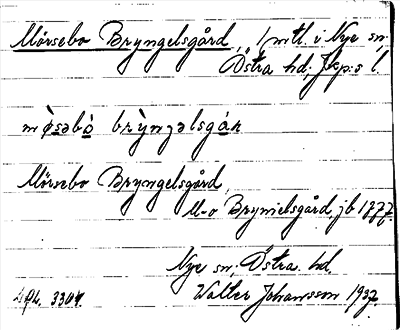 Mörsebo Bryngelsgård, 1 mtl. i Nye sn,
Östra hd, Jkp:s l.
mø̀səbò brỳŋəlsgán
Mörsebo Bryngelsgård,
M-o Brynielsgård, jb 1777.
Nye sn, Östra hd,
Walter Johansson 1937.